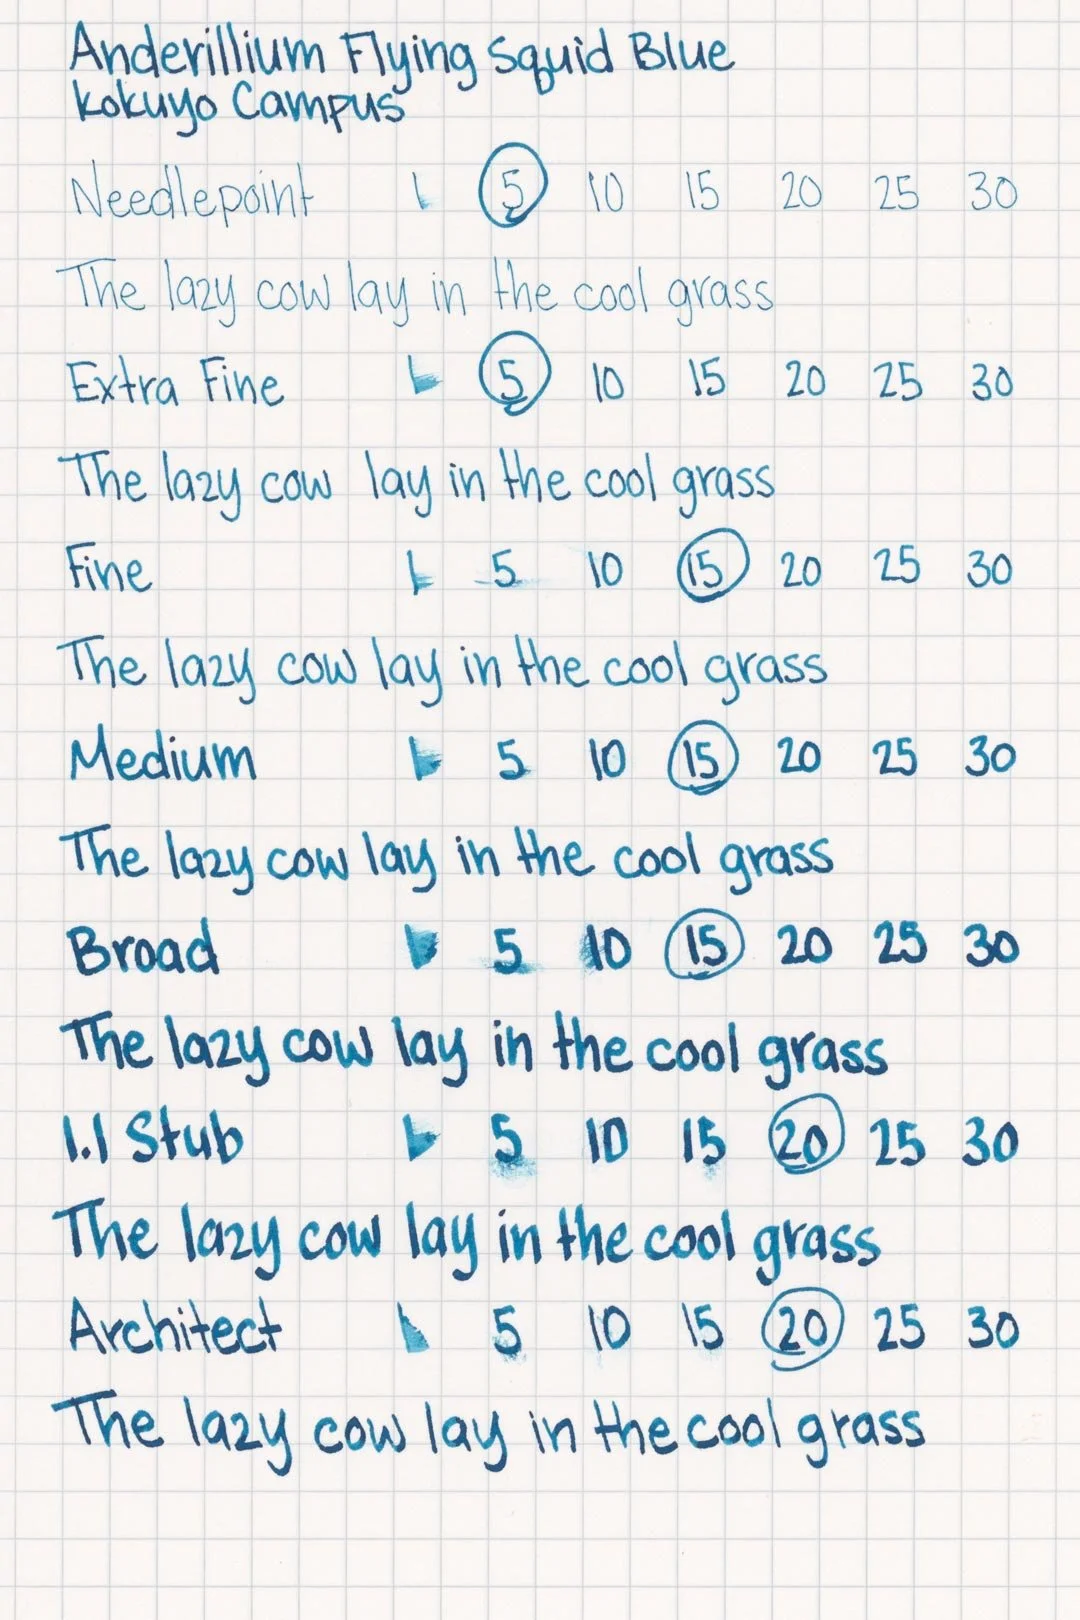 Anderillium Flying Squid Blue
Kokuyo Campus
Needlepoint 1 5 10 15 20 25 30
The lazy cow lay in the cool grass
Extra Fine 1 5 10 15 20 25 30
The lazy cow lay in the cool grass
Fine 1 5 10 15 20 25 30
The lazy cow lay in the cool grass
Medium 1 5 10 15 20 25 30
The lazy cow lay in the cool grass
Broad 1 5 10 15 20 25 30
The lazy cow lay in the cool grass
1.1 Stub 1 5 10 15 20 25 30
The lazy cow lay in the cool grass
Architect 1 5 10 15 20 25 30
The lazy cow lay in the cool grass